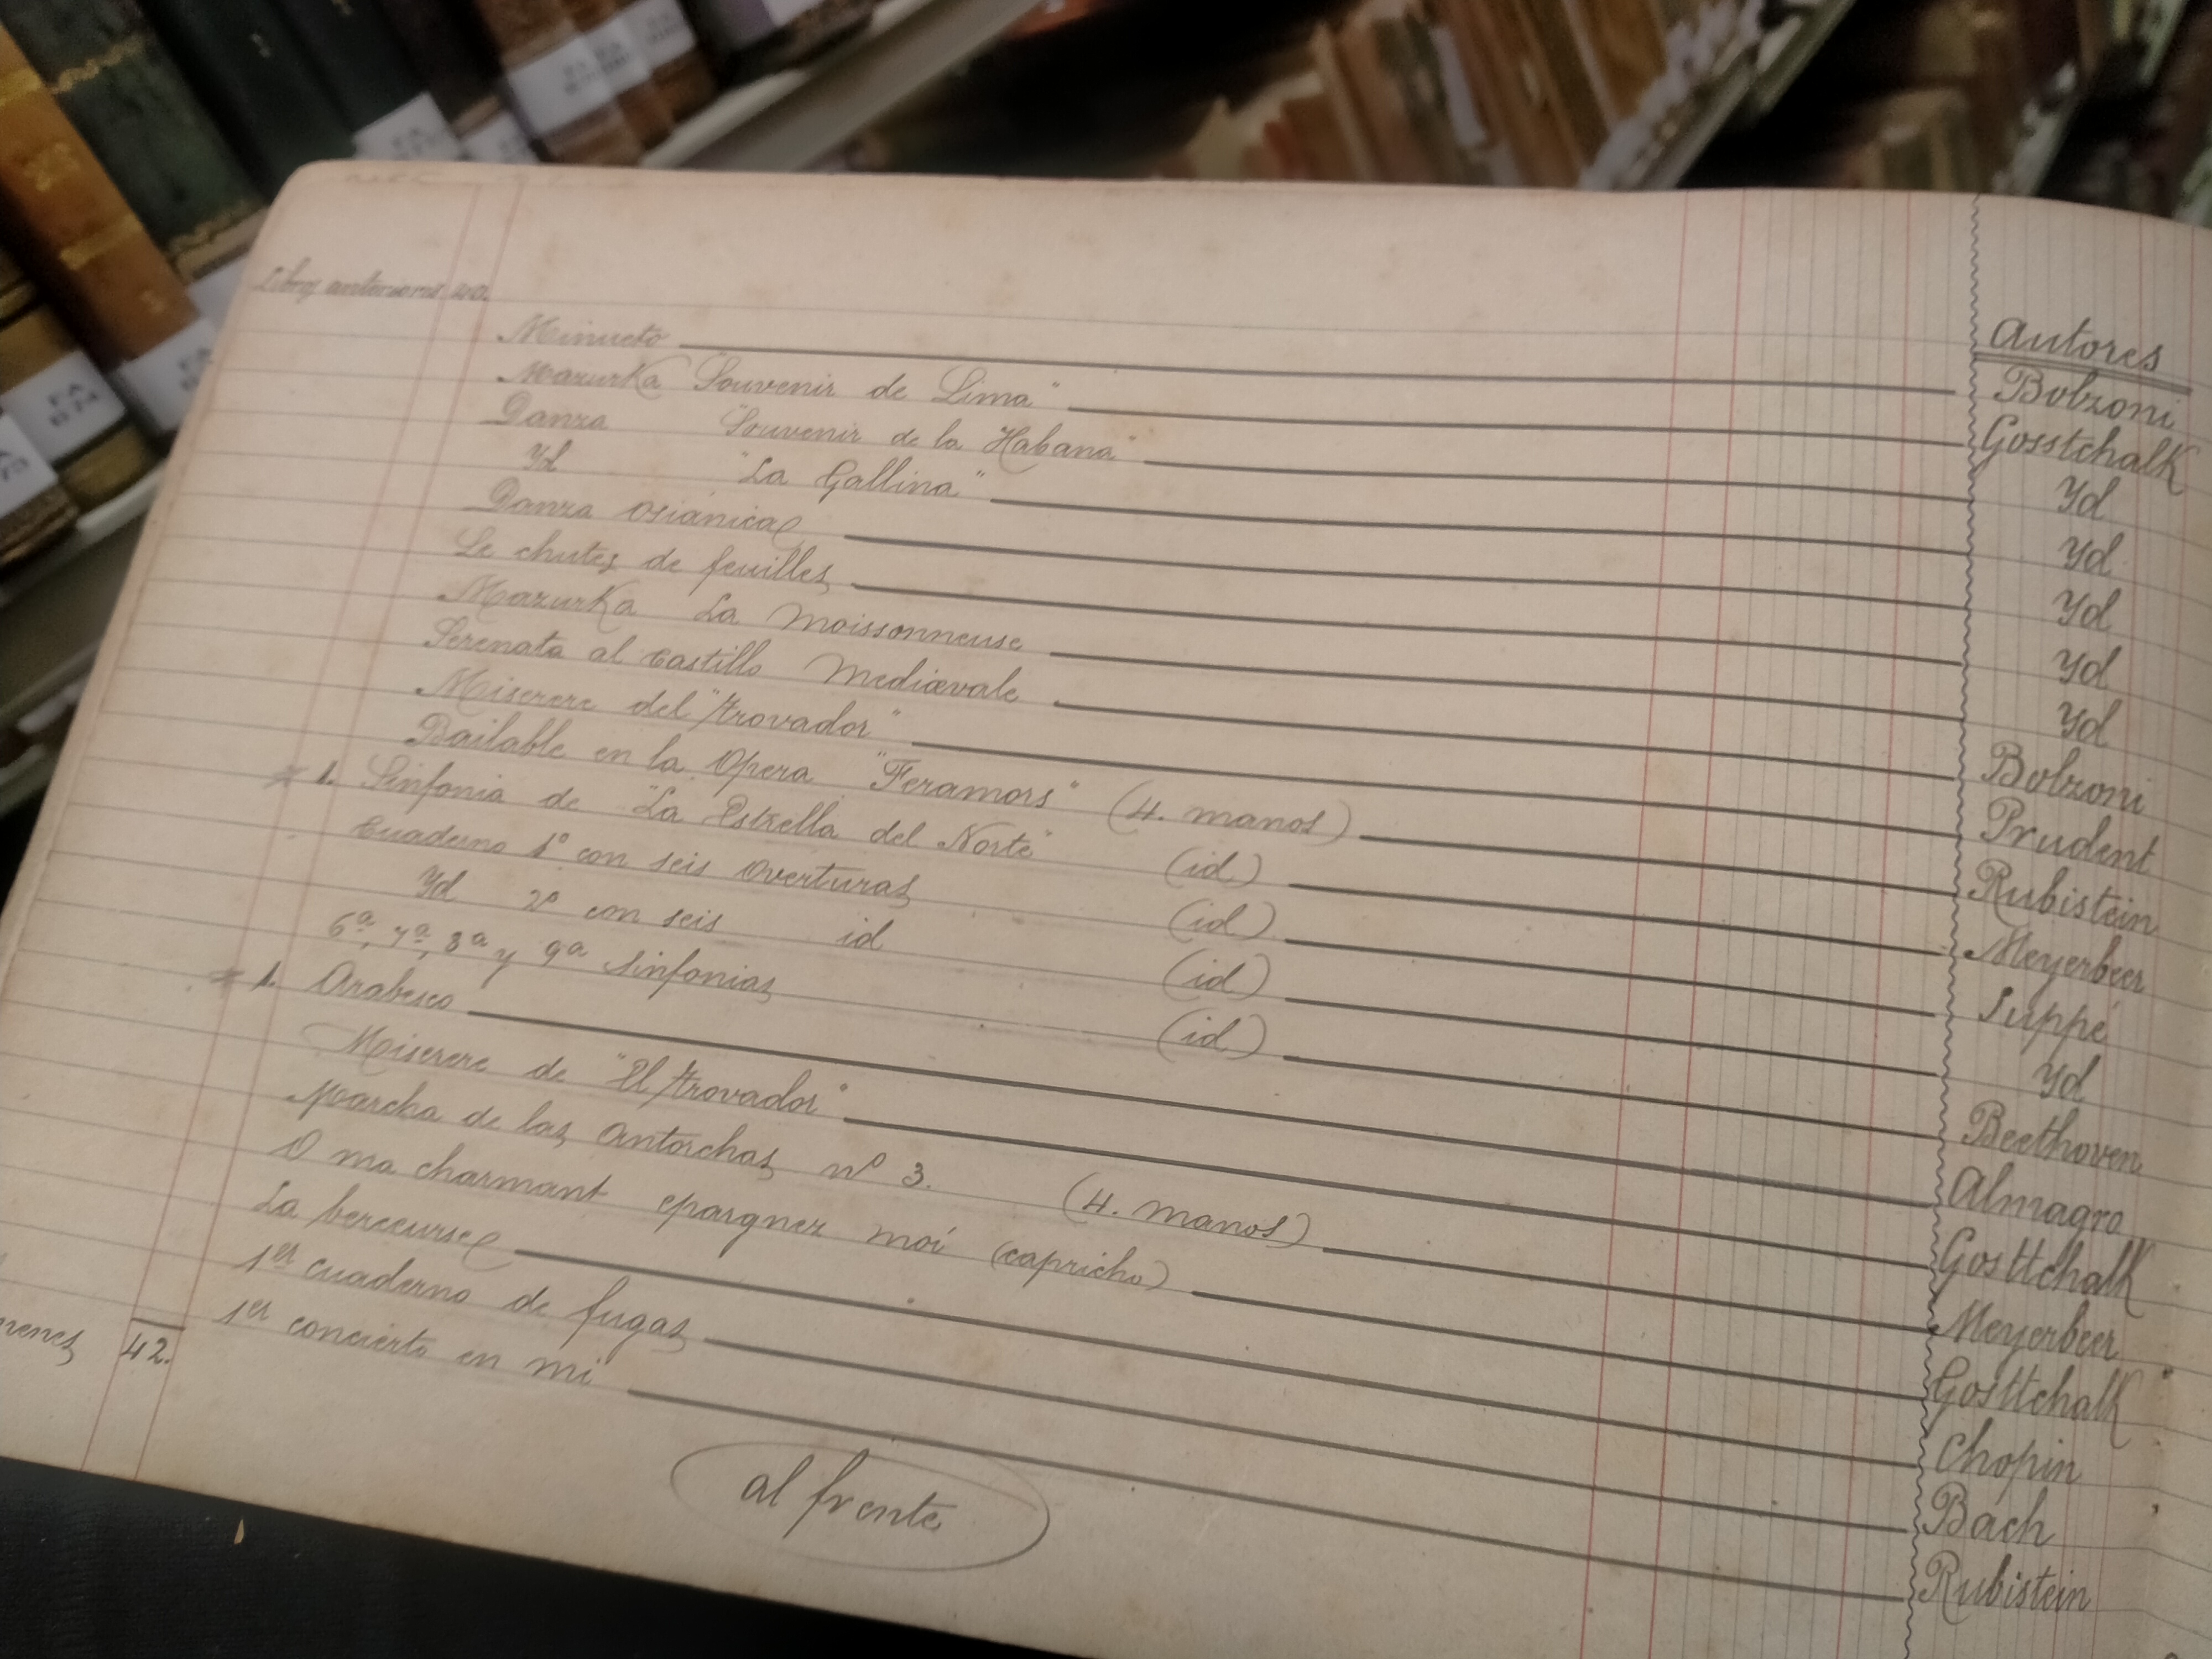 Autores
Minueto Bolzoni
Mazurka "Souvenir de Lima" Gosstchalk
Danza "Souvenir de la Habana" Yd
Yd "La Gallina" Yd
Danza osiánica Yd
Le chutes de feuilles Yd
Mazurka La Moissonneuse Yd
Serenata al Castillo Mediævale Bolzoni
Miserere del "trovador" Prudent
Bailable en la Opera "Feramors" (4. manos) Rubistein
1. Sinfonia de "La Estrella del Norte" (id) Meyerbeer
Cuaderno 1º con seis Overturas (id) Suppé
Yd 2º con seis id (id) Yd
6ª, 7ª, 8ª y 9ª sinfonias (id) Beethoven
1. Arabesco Almagro
Miserere de "El trovador" Gosttchalk
Marcha de las Antorchas nº 3. (4. manos) Meyerbeer
O ma charmant epargnez moi (capricho) Gosttchalk
La berceurse Chopin
1er cuaderno de fugas Bach
1er concierto en mi Rubistein
42.
al frente